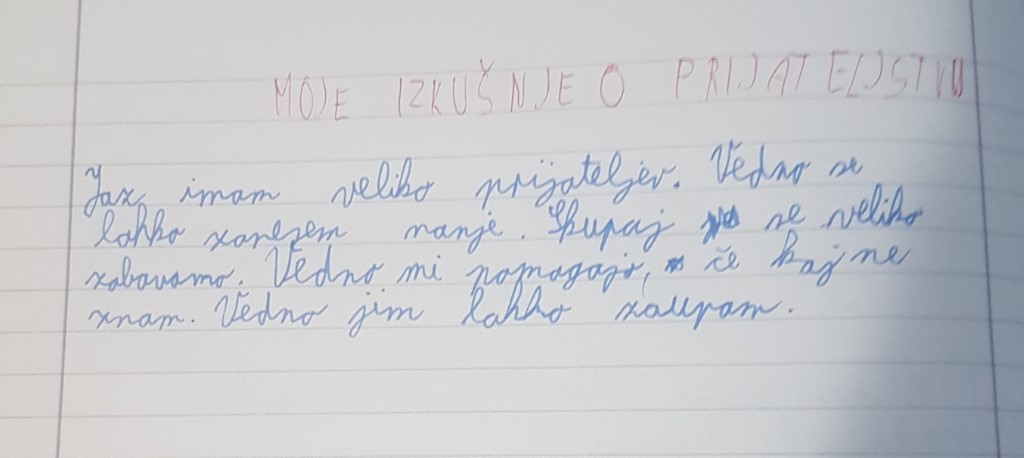 MOJE IZKUŠNJE O PRIJATELJSTVU
Jaz imam veliko prijateljev. Vedno se
lahko zanesem nanje. Skupaj se veliko
zabavamo. Vedno mi pomagajo, če kaj ne
znam. Vedno jim lahko zaupam.